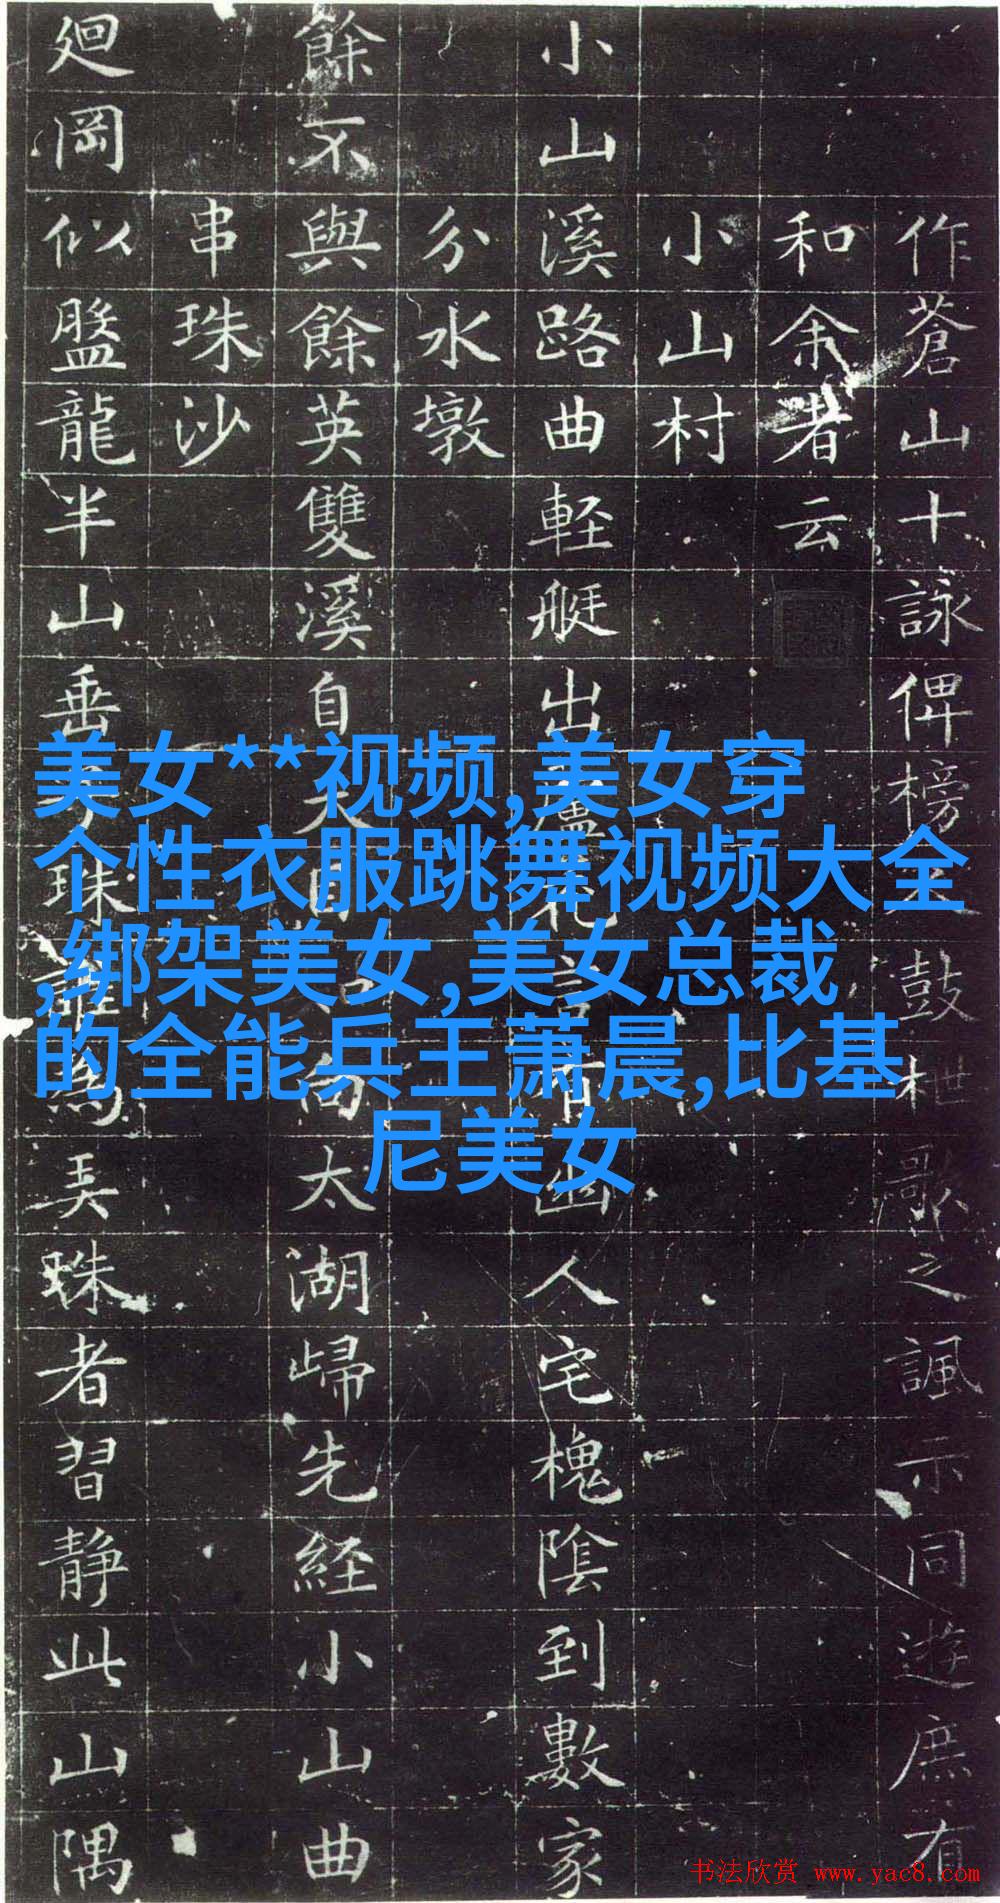 作蒼山十詠俾榜鼓枻歌之諷示同遊庶有
和余者云
小山村
小山溪路曲軽艇出蘆花言有幽人宅槐陰到數家
分水墩
餘不與餘英雙溪自天目向太湖歸先経小山曲
串珠沙
廻岡似盤龍半山垂珠誰為弄珠者習静此山隅
美女**视频,美女穿
个性衣服跳舞视频大全
,绑架美女,美女总裁
的全能兵王萧晨,比基
尼美女
书法欣赏 www.yac8.com